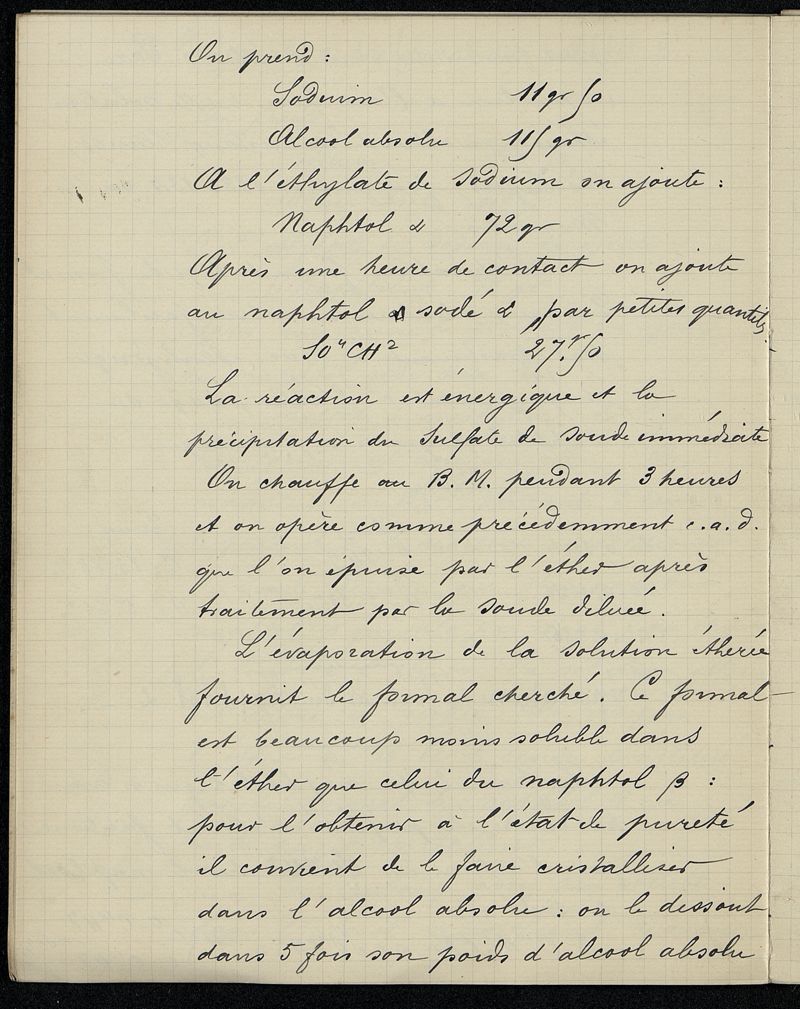 On prend :
Sodium 11 gr 50
Alcool absolu 115 gr
A l'éthylate de sodium on ajoute :
Naphtol α 72 gr
Après une heure de contact on ajoute
au naphtol sodé α par petites quantités
SO⁴CH²  27.gr50
La réaction est énergique et la
précipitation du Sulfate de soude immédiate
On chauffe au B. M. pendant 3 heures
et on opère comme précédemment c.a.d.
que l'on épuise par l'éther après
traitement par la soude diluée.
L'évaporation de la solution éthérée
fournit le formal cherché. Ce formal
est beaucoup moins soluble dans
l'éther que celui du naphtol β :
pour l'obtenir à l'état de pureté
il convient de le faire cristalliser
dans l'alcool absolu : on le dissout
dans 5 fois son poids d'alcool absolu